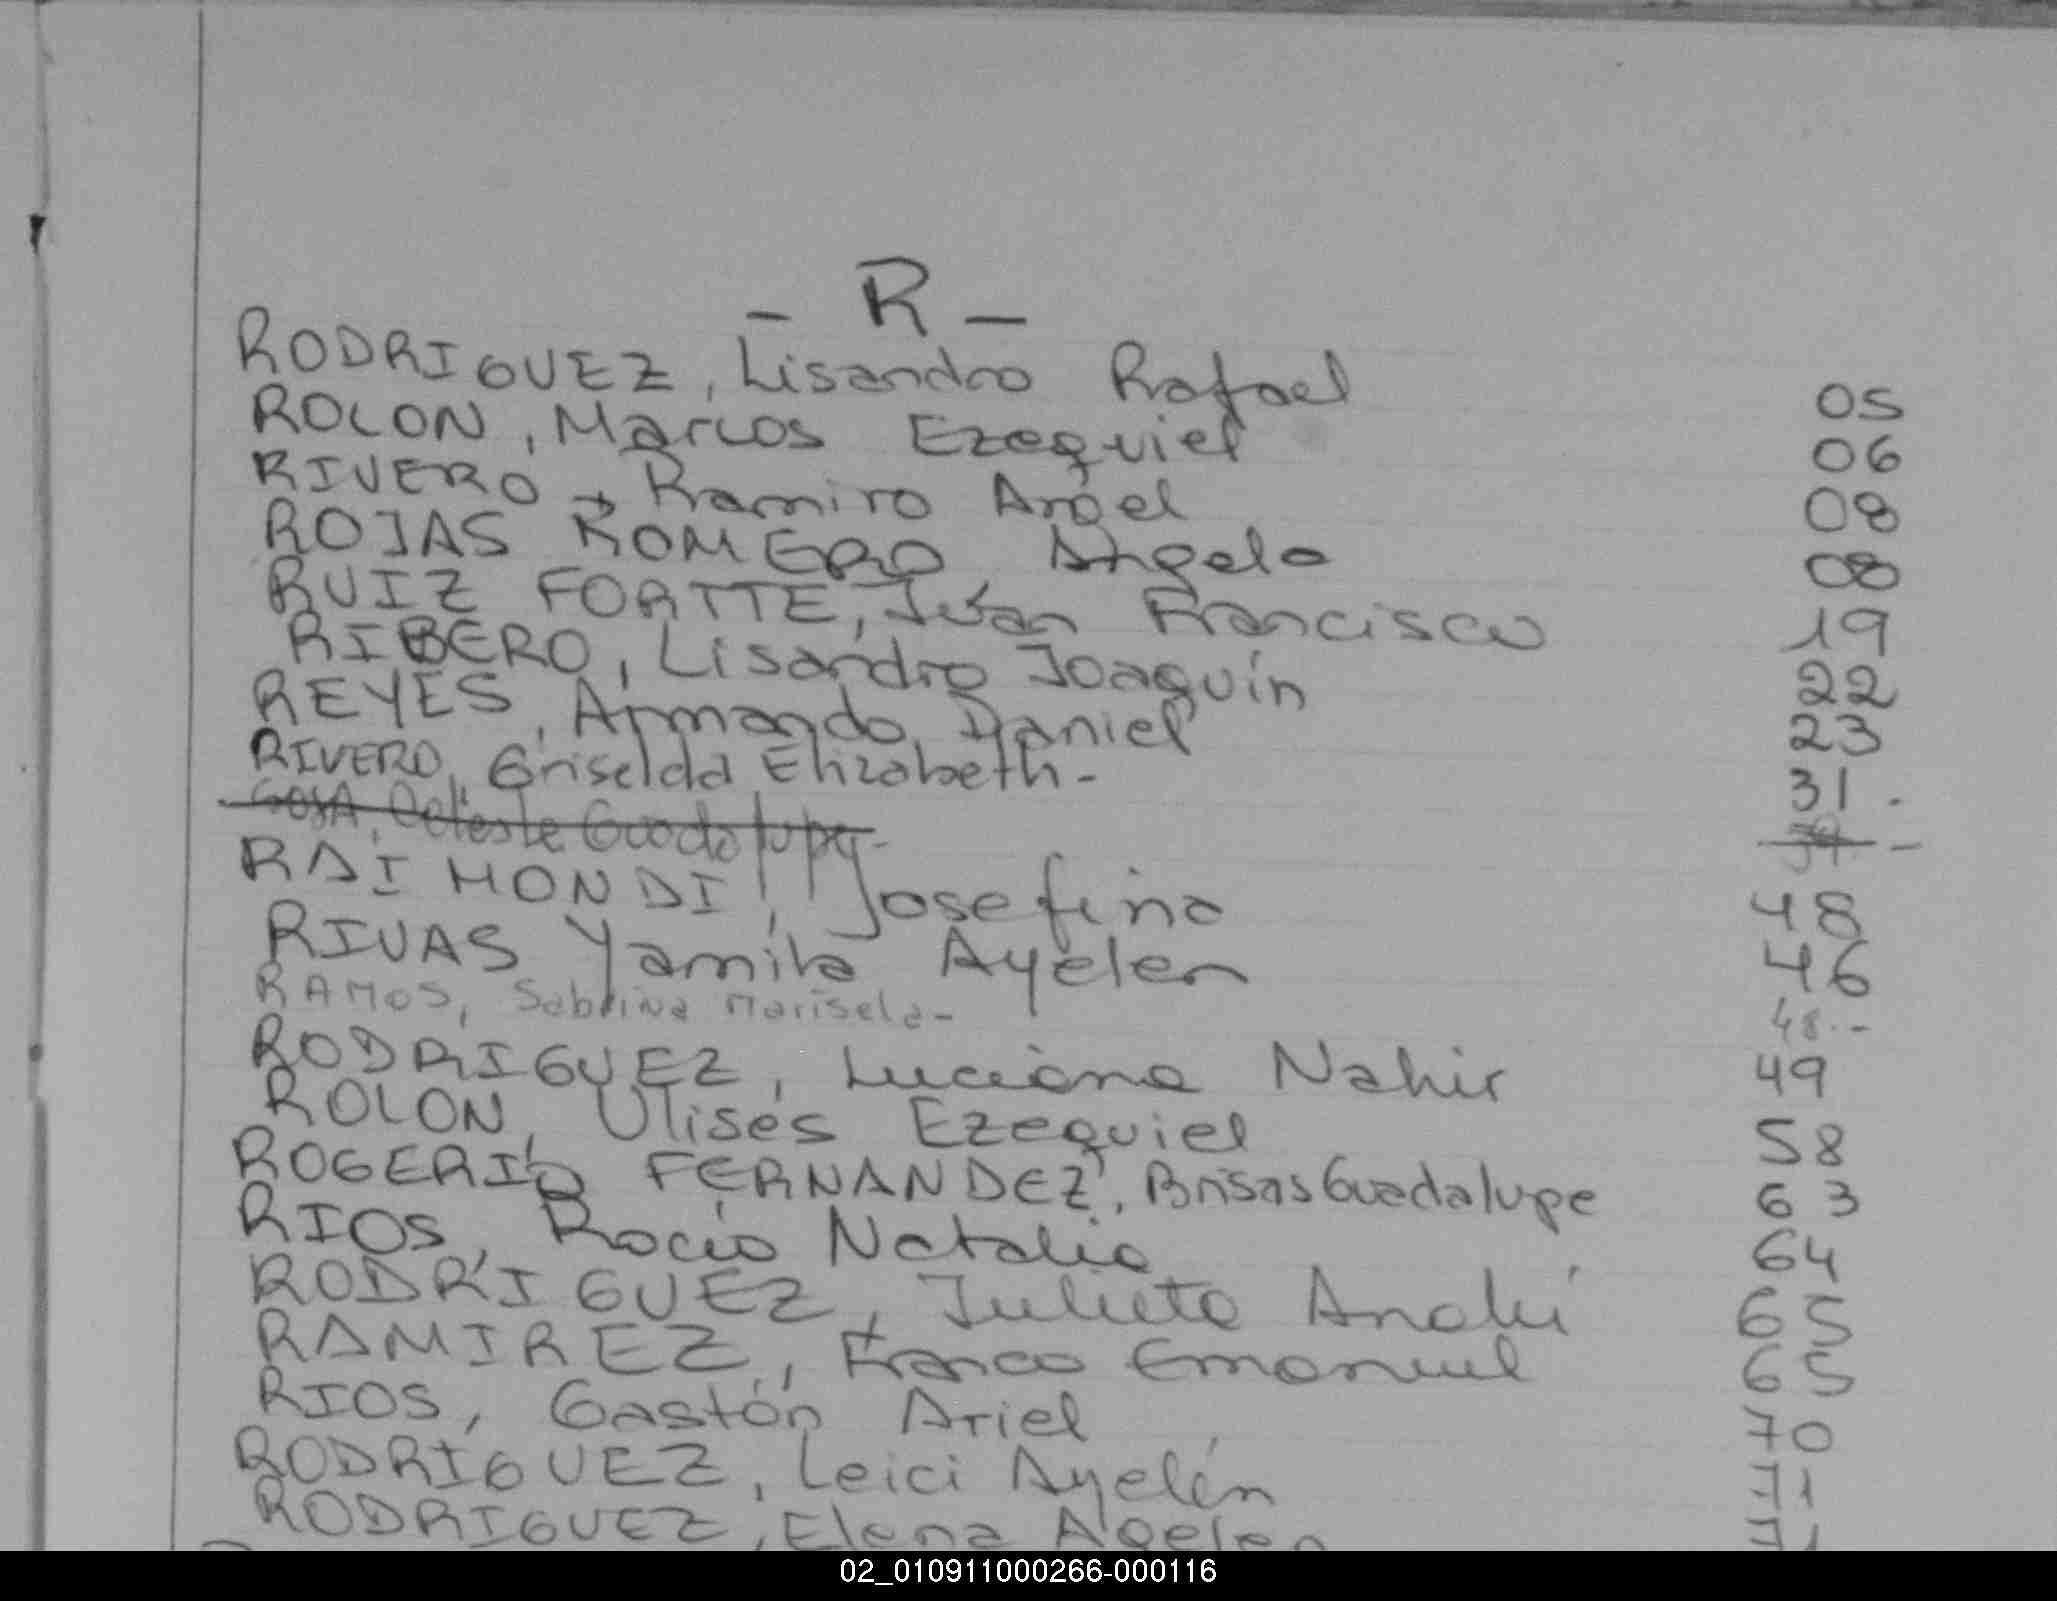 - R -
RODRIGUEZ, Lisandro Rafael 05
ROLON, Marcos Ezequiel 06
RIVERO, Ramiro Angel 08
ROJAS ROMERO Angelo 08
RUIZ FORTTE, Iván Francisco 19
RIBERO, Lisandro Joaquín 22
REYES, Armando Daniel 23
RIVERO, Griselda Elizabeth- 31.
SOSA, Celeste Guadalupe-
RAIMONDI, Josefina 48
RIVAS Yamila Ayelen 46
RAMOS, Sabrina Marisela- 48.-
RODRIGUEZ, Luciana Nahir 49
ROLON, Ulises Ezequiel 58
ROGERIO FERNANDEZ, Brisas Guadalupe 63
RIOS, Rocío Natalia 64
RODRIGUEZ, Julieta Anahí 65
RAMIREZ, Franco Emanuel 65
RIOS, Gastón Ariel 70
RODRIGUEZ, Leici Ayelén 71
RODRIGUEZ, Elena
02_010911000266-000116